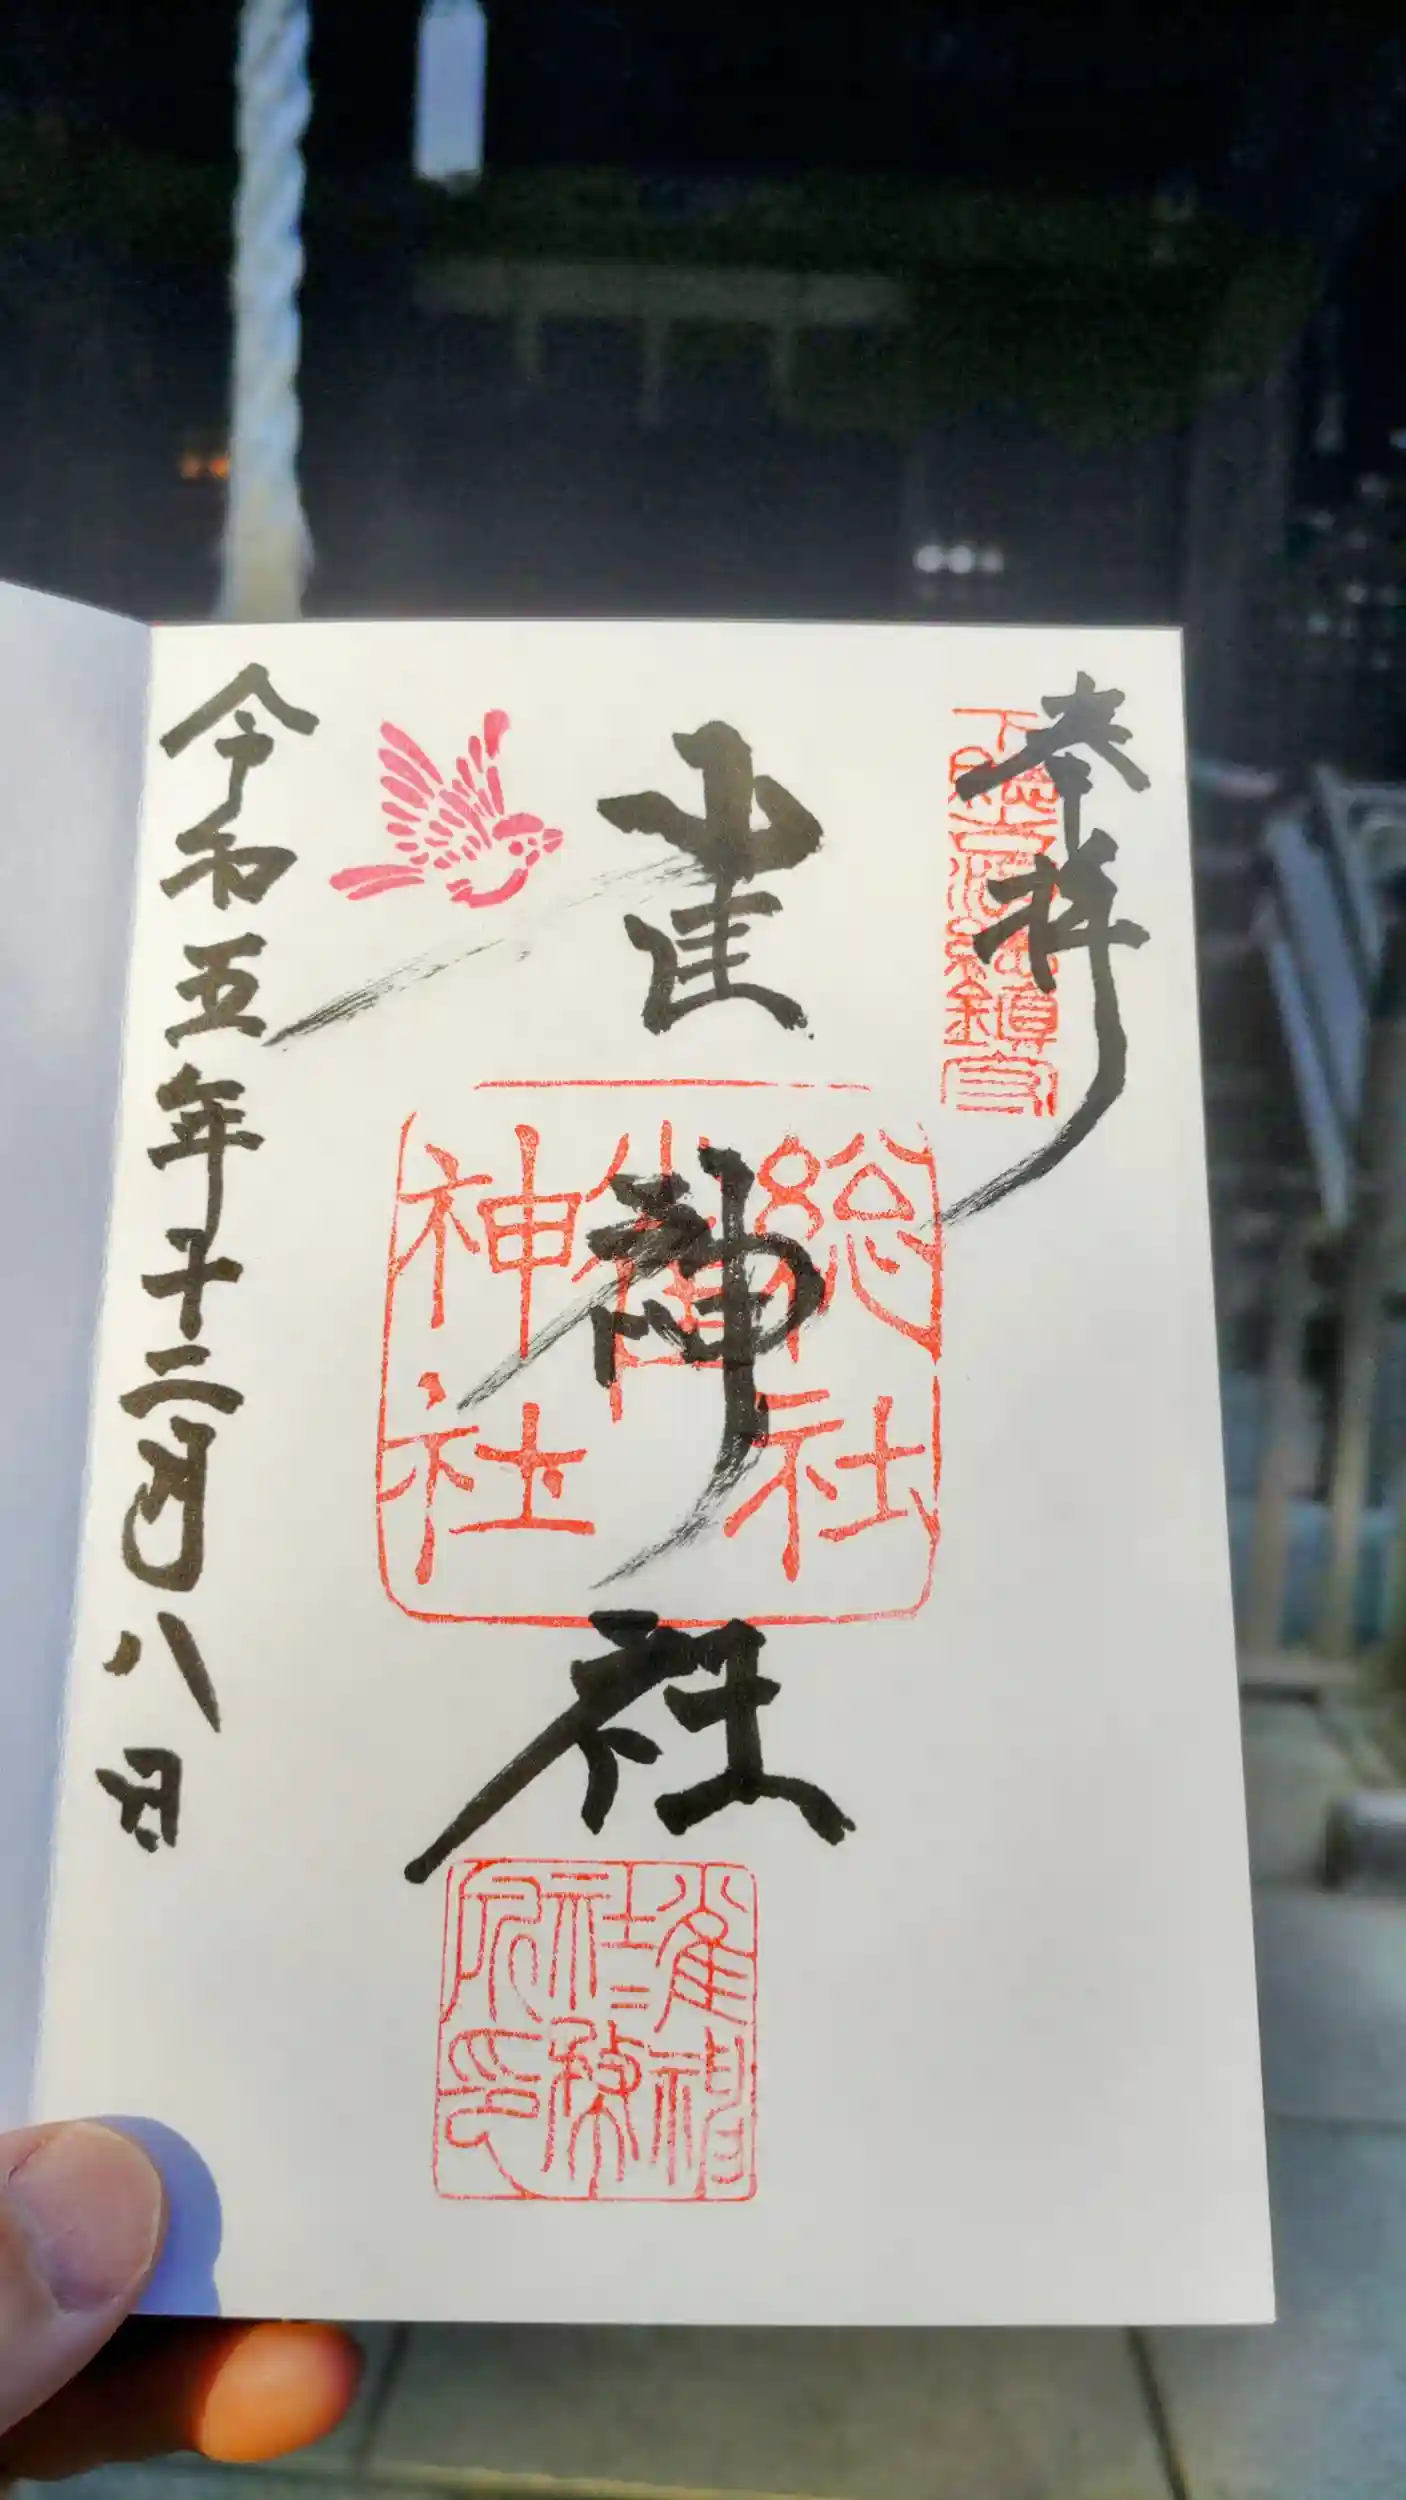 奉拝
下総国総鎮守
雀神社
総社
雀
神社
雀神
社務
所印
令和五年十二月八日